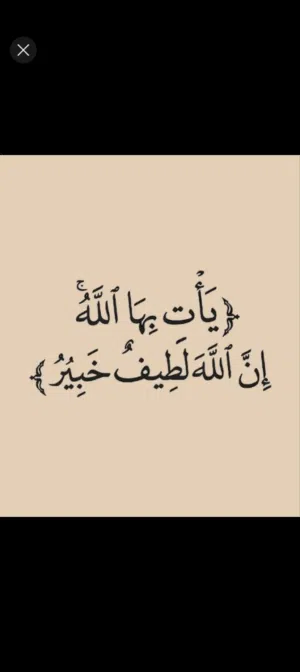 ﴿يَأْتِ بِهَا ٱللَّهُ ۚ
إِنَّ ٱللَّهَ لَطِيفٌ خَبِيرٌ﴾